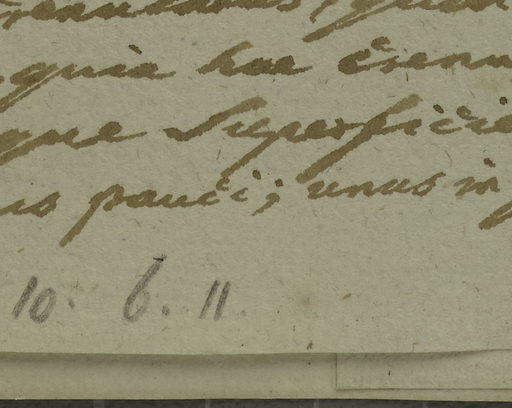 quia hae crenu
que Superficie
us pauci; unus in
10. 6. 11.